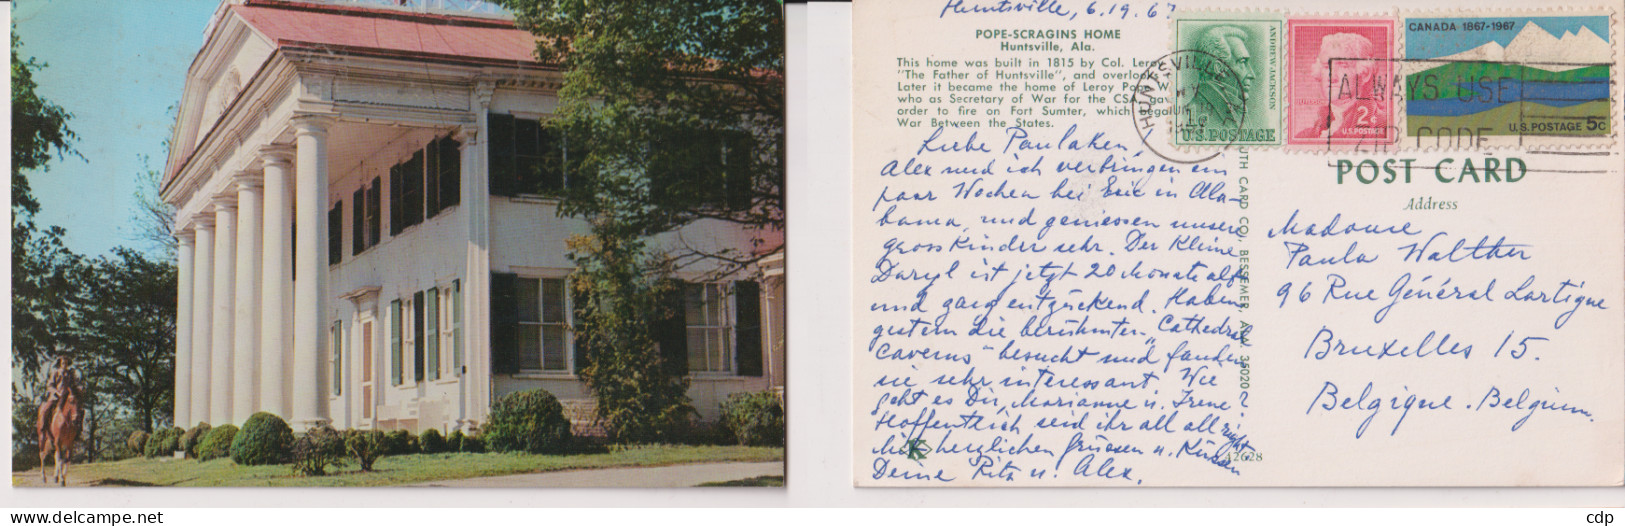 Huntsville, 6.19.67
POPE-SCRAGINS HOME
Huntsville, Ala.
This home was built in 1815 by Col. Leroy
"The Father of Huntsville", and overlook
Later it became the home of Leroy Pope W
who as Secretary of War for the CSA gav
order to fire on Fort Sumter, which legal
War Between the States.
Liebe Paulaken,
Alex und ich verbringen ein
paar Wochen bei Eric in Ala-
bama, und geniessen unsere
grosskinder sehr. Der Kleine
Daryl ist jetzt 20 Monate alt
und ganz entzückend. Haben
gestern die berühmten "Cathedral
Caverns" besucht und fanden
sie sehr interessant. Wie
geht es Dir, Marianne u. Irene?
Hoffentlich seid ihr all all right,
Mit herzlichen Grüssen u. Küssen
Deine Rita u. Alex.
UTH CARD CO., BESSEMER, ALA. 35020
42628
K
HUNTSVILLE
ANDREW JACKSON
U.S. POSTAGE
2¢
U.S. POSTAGE
CANADA 1867-1967
U.S. POSTAGE 5c
ALWAYS USE
ZIP CODE
POST CARD
Address
Madame
Paula Walther
96 Rue Général Lartigue
Bruxelles 15.
Belgique. Belgium.
cdp